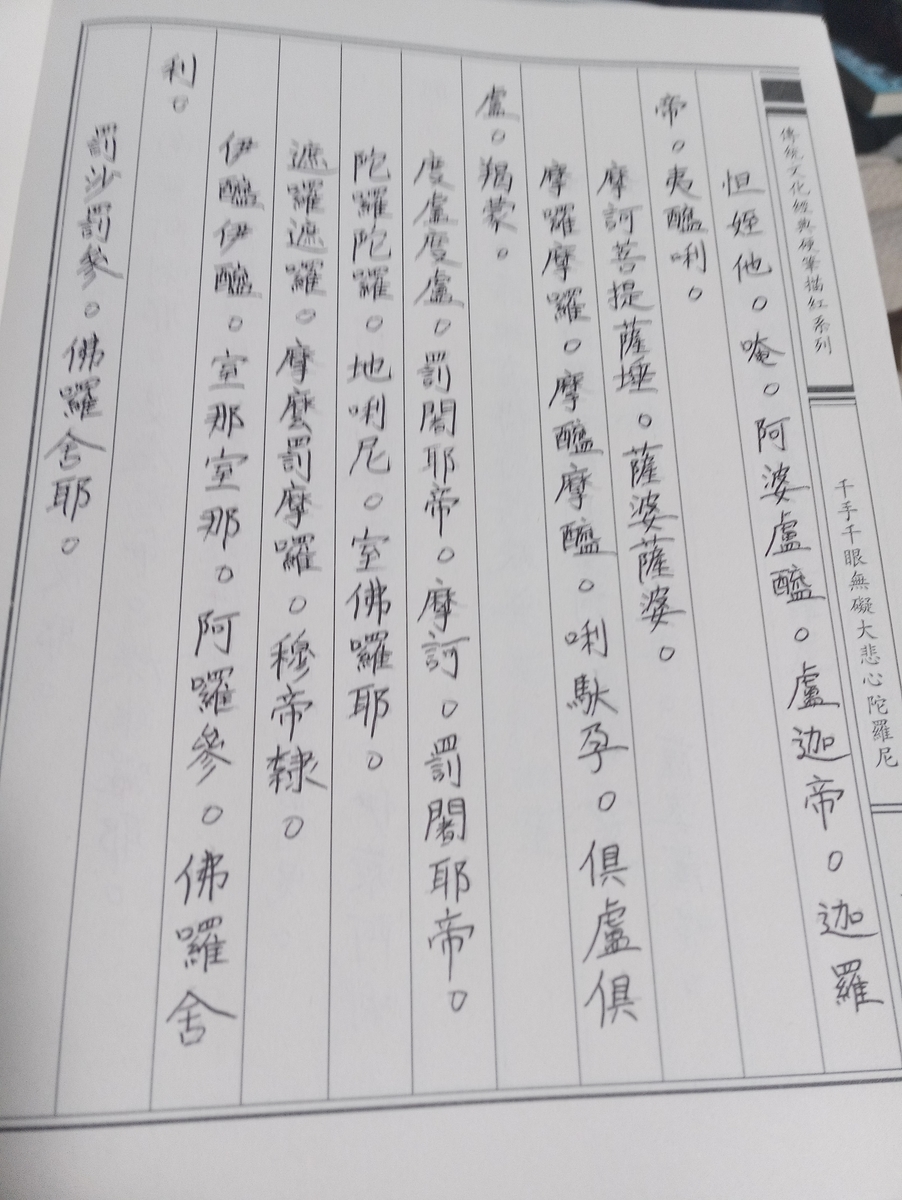 傳統文化經典硬筆描紅系列
千手千眼無礙大悲心陀羅尼
怛姪他。唵。阿婆盧醯。盧迦帝。迦羅
帝。夷醯唎。
摩訶菩提薩埵。薩婆薩婆。
摩囉摩囉。摩醯摩醯。唎馱孕。俱盧俱
盧。羯蒙。
度盧度盧。罰闍耶帝。摩訶。罰闍耶帝。
陀羅陀羅。地唎尼。室佛囉耶。
遮羅遮羅。摩麼罰摩囉。穆帝隸。
伊醯伊醯。室那室那。阿囉參。佛囉舍
利。
罰沙罰參。佛囉舍耶。